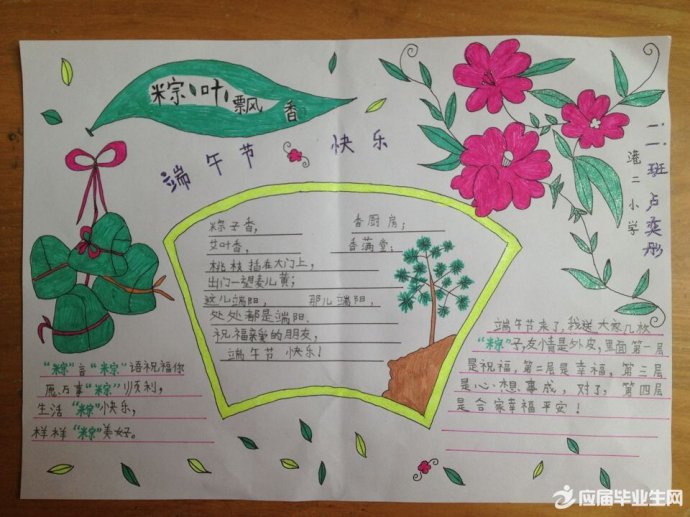 粽叶飘香
端午节 快乐
粽子香, 香厨房;
艾叶香, 香满堂;
桃枝插在大门上,
出门一望麦儿黄;
这儿端阳, 那儿端阳,
处处都是端阳.
祝福亲爱的朋友,
端午节快乐!
“粽”言“粽”语祝福你
愿万事“粽”顺利,
生活“粽”快乐,
样样“粽”美好。
港二小学
二一班卢奕彤
端午节来了,我送大家几枚
“粽”子,友情是外皮,里面第一层
是祝福,第二层是幸福,第三层
是心想事成,对了,第四层
是合家幸福平安!
应届毕业生网